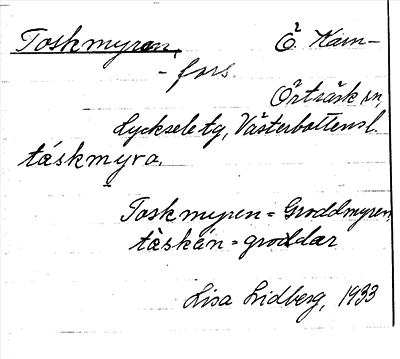 Toskmyren, Ö. Kärn-
- fors.
Örträsk sn,
Lycksele tg, Västerbottensl.
táskmyra.
Toskmyren = Groddmyren,
tàskán = groddar
Lisa Lidberg, 1933